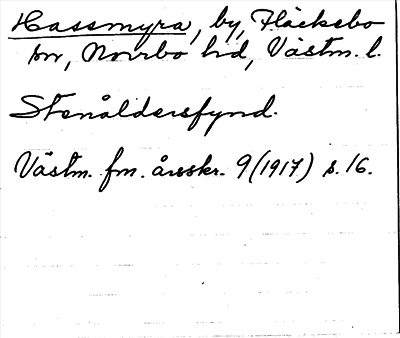 Hassmyra, by, Fläckebo
sn, Norrbo hd, Västm. l.
Stenåldersfynd.
Västm. fm. årsskr. 9 (1917) s. 16.